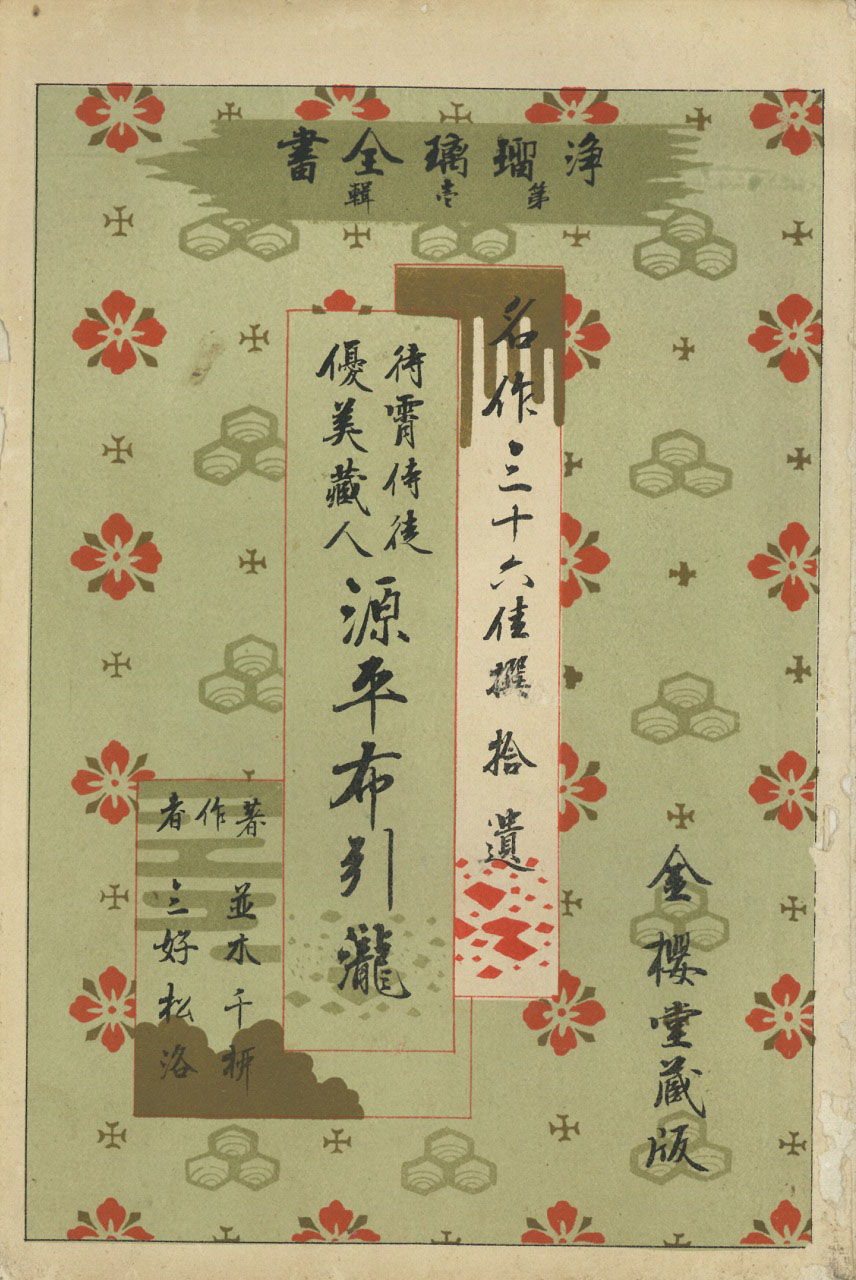 浄瑠璃全書
第壱輯
金櫻堂蔵版
名作三十六佳撰拾遺
待霄侍従
優美蔵人
源平布引瀧
著作者
並木千柳
三好松洛